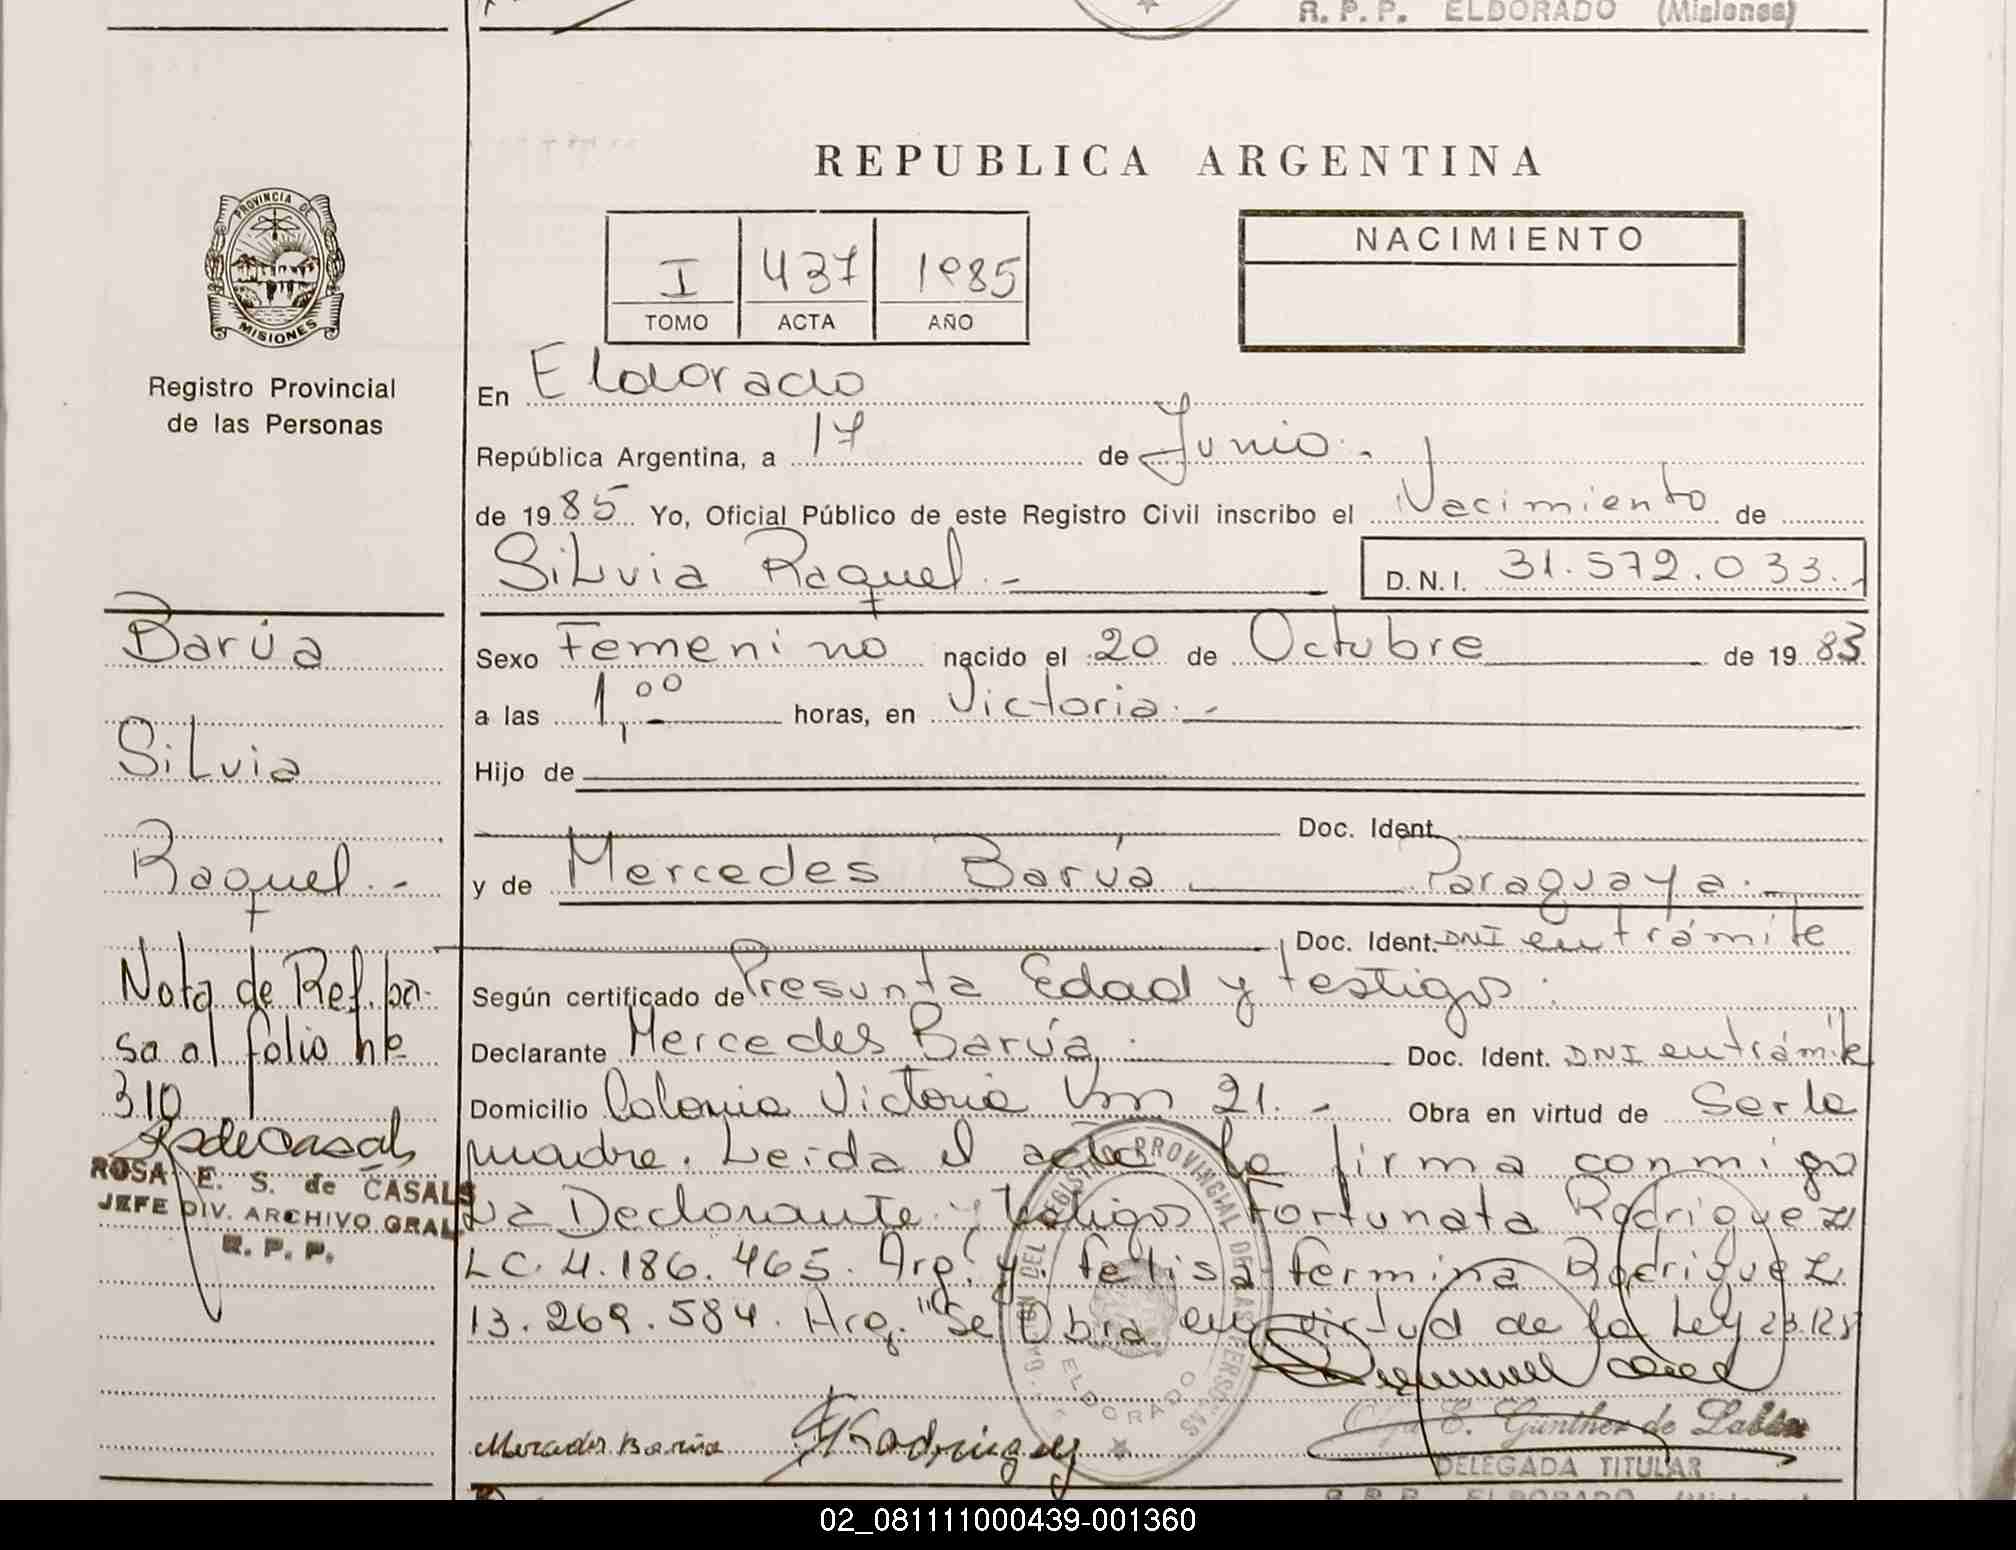 R. P. P. ELDORADO (Misiones)
REPUBLICA ARGENTINA
PROVINCIA DE
MISIONES
Registro Provincial
de las Personas
I 437 1985
TOMO ACTA AÑO
NACIMIENTO
En Eldorado
República Argentina, a 17 de Junio.-
de 1985 Yo, Oficial Público de este Registro Civil inscribo el Nacimiento de
Silvia Raquel.- D.N.I. 31.572.033.-
Barúa
Silvia
Raquel.-
Sexo Femenino nacido el 20 de Octubre de 1983
a las 1,00 horas, en Victoria.-
Hijo de
Doc. Ident.
y de Mercedes Barúa Paraguaya.-
Doc. Ident. DNI en trámite
Según certificado de Presunta Edad y testigos.
Declarante Mercedes Barúa. Doc. Ident. DNI en trámite
Domicilio Colonia Victoria Km 21.- Obra en virtud de Ser la
madre. Leida el acta la firma conmigo
La Declarante y testigos Fortunata Rodriguez
LC. 4.186.465. Arg. y. Felisa Fermina Rodriguez
13.269.584. Arg. "Se Obra en virtud de la Ley 23.128
Nota de Ref. pa-
sa al folio nº
310
ROSA E. S. de CASALS
JEFE DIV. ARCHIVO GRAL.
R. P. P.
DEL REGISTRO PROVINCIAL DE LAS PERSONAS
ELDORADO
Mercedes Barúa Rodriguez
E. Günther de
DELEGADA TITULAR
R. P. P. ELDORADO (Misiones)
02_081111000439-001360